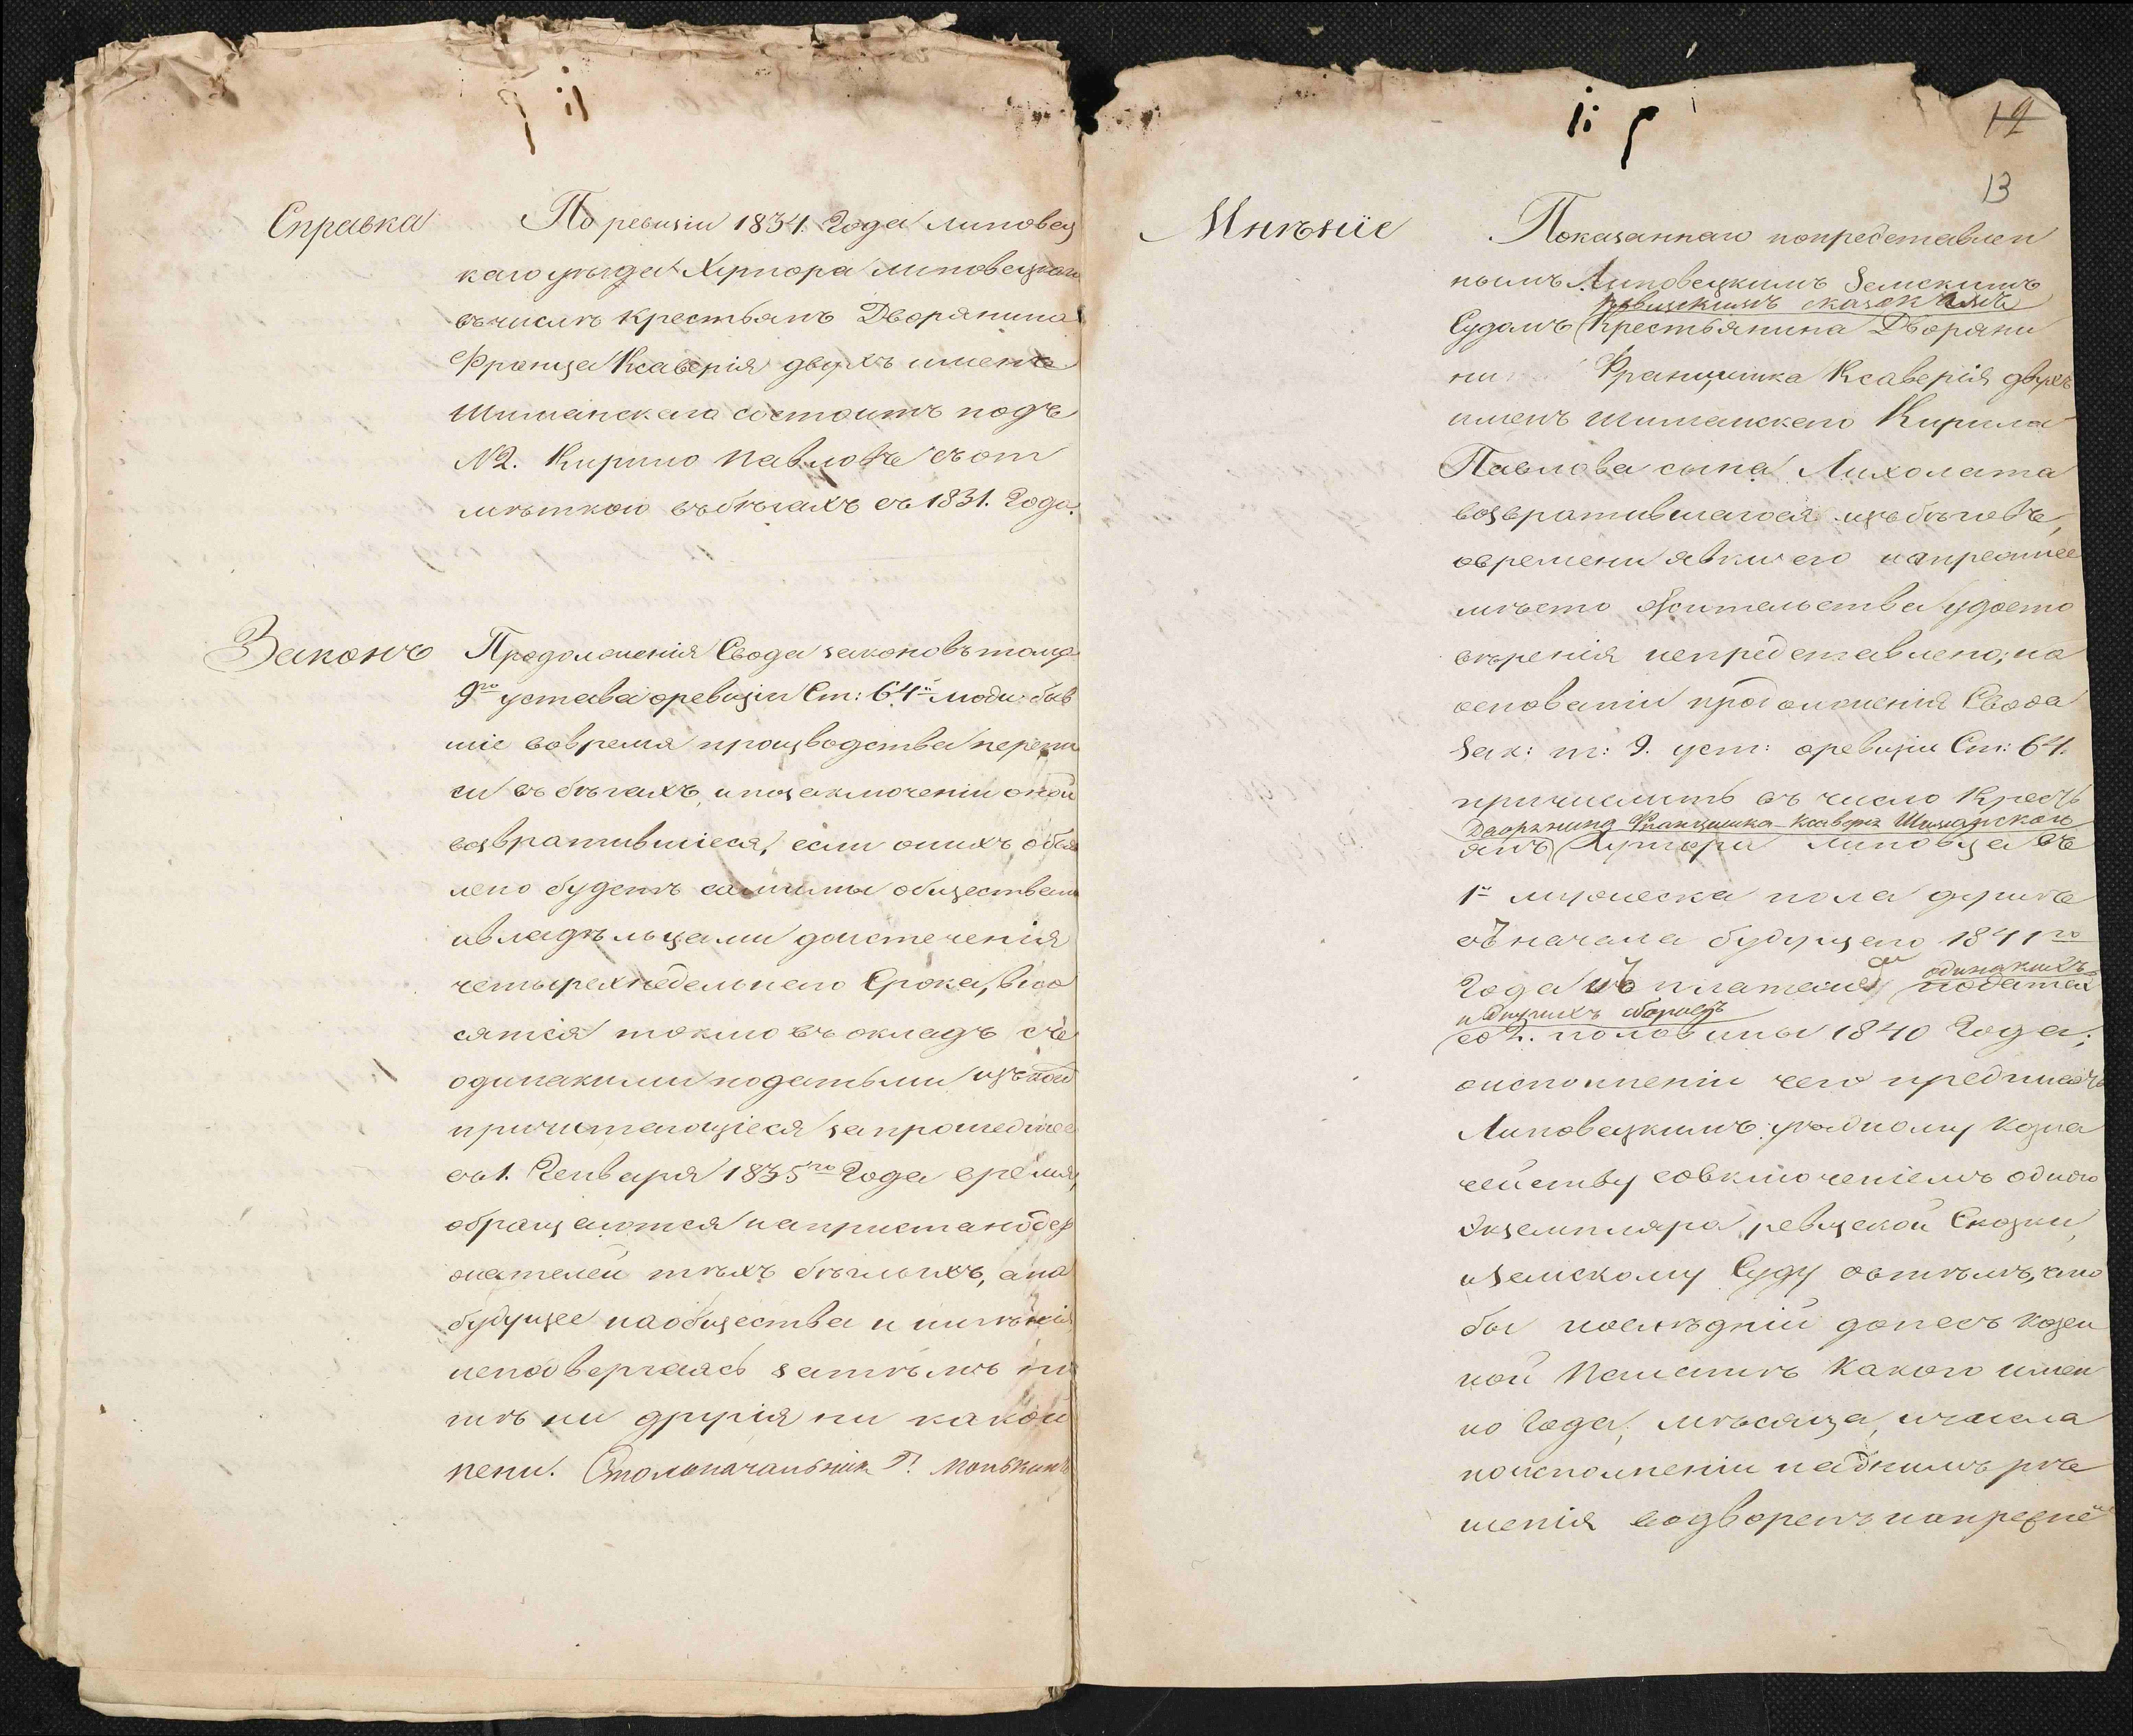 Справка
По ревизіи 1834. Года Липовец
каго уѣзда Хутора Липовецкаго
въ числѣ Крестьянъ Дворянина
Франца Ксаверія двухъ именъ
Шиманскаго состоитъ подъ
№2. Кирило Павловъ съ от
мѣткою въ бѣгахъ съ 1831. Года.
Законъ
Продолженія Свода законовъ тома
9го устава о ревизіи Ст: 64й люди быв
шіе во время производства перепи
си въ бѣгахъ, и по заключеніи оной
возвратившіеся, если о нихъ объяв
лено будетъ самими обществами
и владѣльцами до истечения
четырехнедельнаго Срока, вно
сятся токмо въ окладъ съ
одинакими податьми изъ коихъ
причитающіеся за прошедшее
съ 1. Генваря 1835го Года время,
обращаются на пристанодер
жателей тѣхъ бѣглыхъ, а на
будущее на общества и имѣнія
неподвергаясь затѣмъ ни
тѣ ни другія ни какой
пени. Столоначальник П.
12
13
Мнѣніе
Показаннаго по представлен
нымъ Липовецкимъ Земскимъ
ревизскимъ сказкамъ
Судомъ Крестьянина Дворяни
на Францишка Ксаверія двухъ
именъ Шиманскаго Кирила
Павлова сына Лихолата
возвратившагося изъ бѣговъ,
о времени явки его на прежнее
мѣсто жительства удосто
вѣренія непредставлено; на
основаніи продолженія Свода
Зак: т: 9. уст: о ревизіи Ст: 64.
причислить въ число Кресть
Дворянина Францишка Ксаверія Шиманскаго
янъ Хутора Липовца въ
1й мужеска пола душѣ
съ начала будущаго 1841го
Года съ платежемъ одинакихъ податей
и другихъ сборовъ
со 2. половины 1840 Года;
о исполненіи чего предписать
Липовецкимъ уѣздному Казна
чейству со включеніемъ одного
Экземпляра ревизской Сказки,
и Земскому Суду съ тѣмъ, что
бы послѣдній донесъ Казен
ной Палатѣ какого имен
но Года, мѣсяца, и числа
по исполненіи надъ нимъ рѣ
шенія водворенъ на прежнее